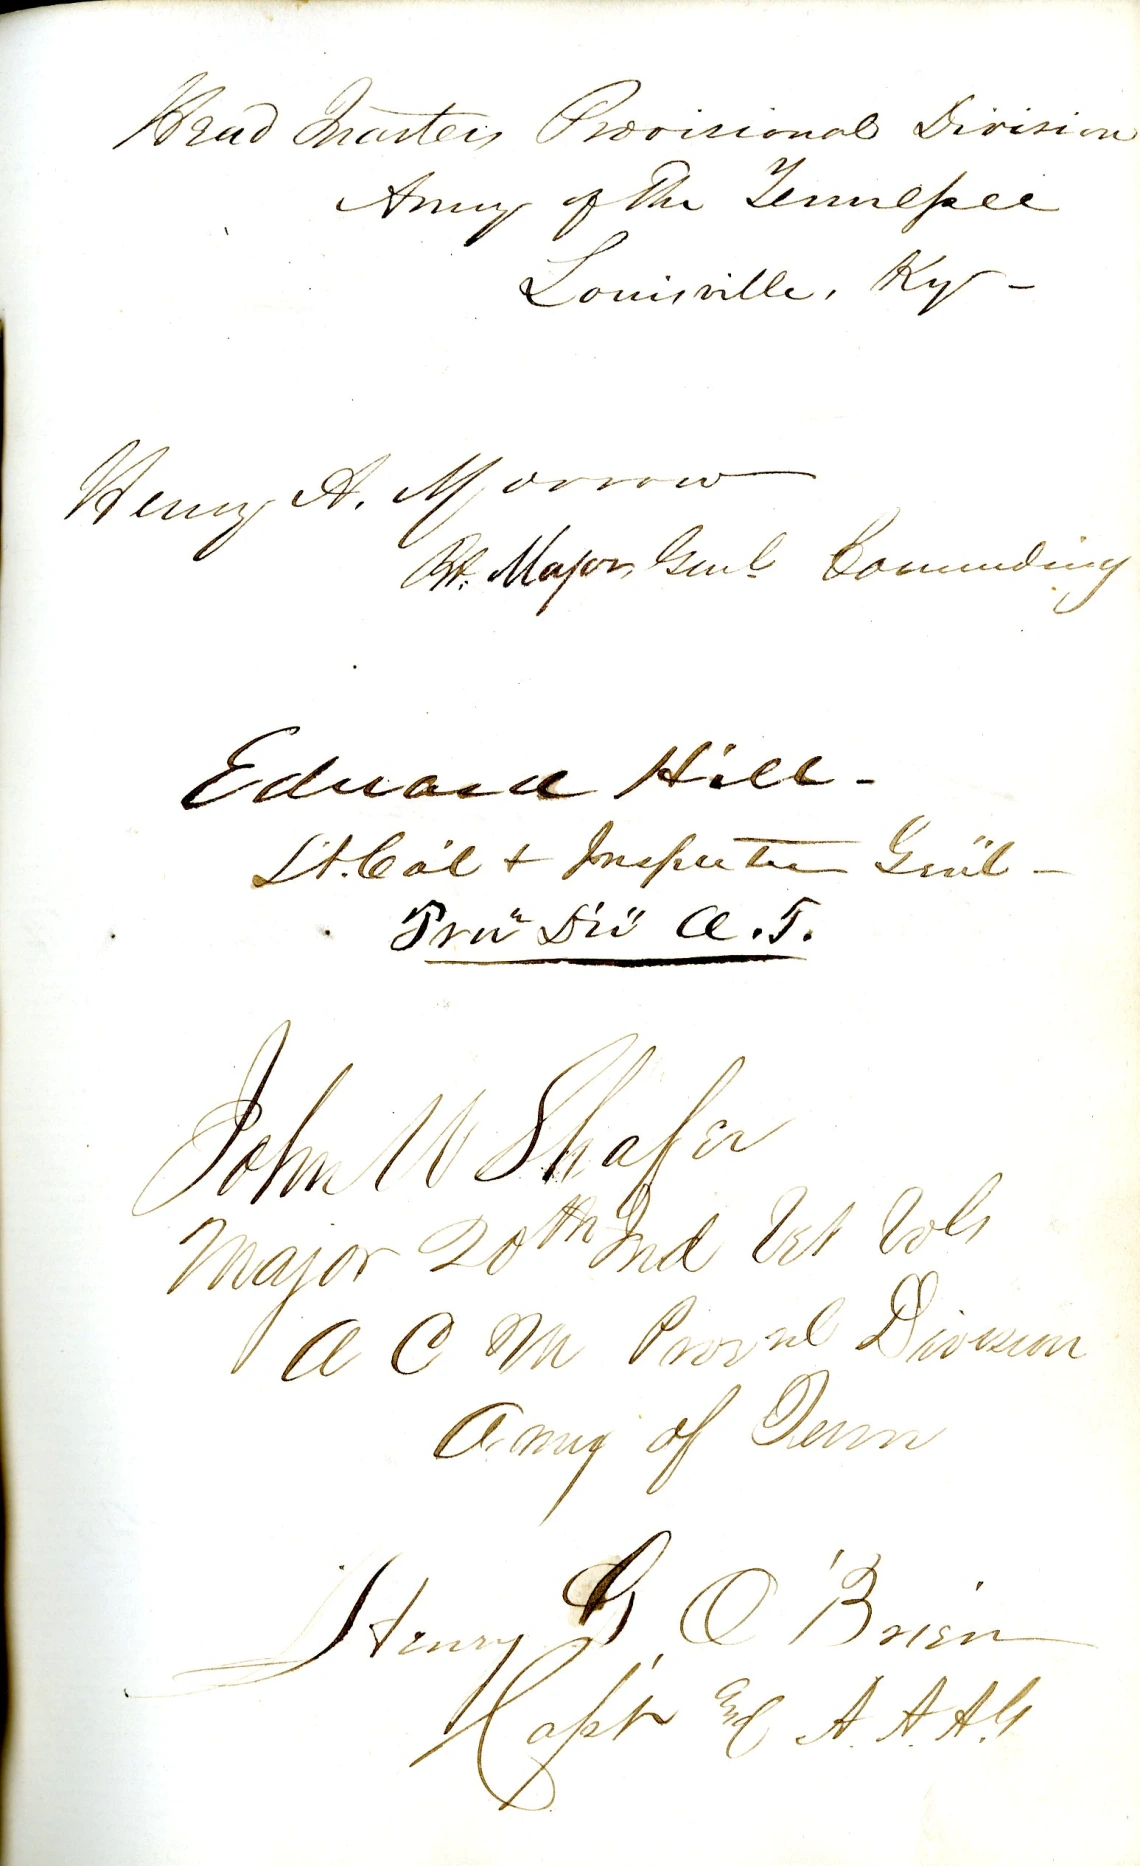 Head Quarters Provisional Division
Army of the Tennessee
Louisville, Ky –
Henry A. Morrow
Bt. Major Genl Commanding
Edward Hill –
Lt. Col + Inspector Genl –
Prov Div A.T.
John W Shafer
Major 20th Ind Vet Vols
A C M Prov nl Division
Army of Tenn
Henry G O'Brien
Capt and A. A. A. G